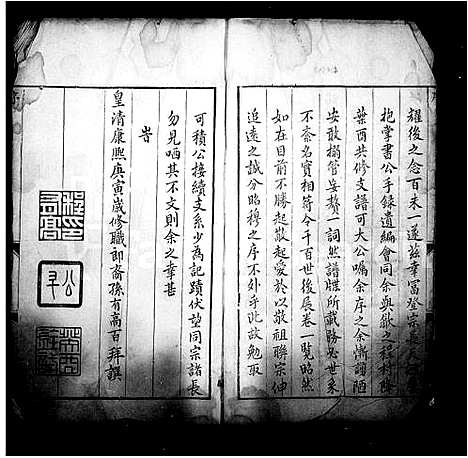 耀後之念百未一遂茲幸冨登宗長
抱掌書公手録遺編會同余與歙之程村
葉酉共修支譜可大公囑余序之余慚譾陋
安敢搦管妄贅一詞然譜牒所載勝紀世系
不紊名實相符令千百世後展卷一覧昭然
如在目前不勝起敬起愛於以敬祖聯宗伸
追遠之誠分昭穆之序不外乎此故勉取
可積公接續支系少為記蹟伏望同宗諸長
勿見哂其不文則余之幸甚
旹
皇清康熙庚寅歲修職郎裔孫有高百拜譔